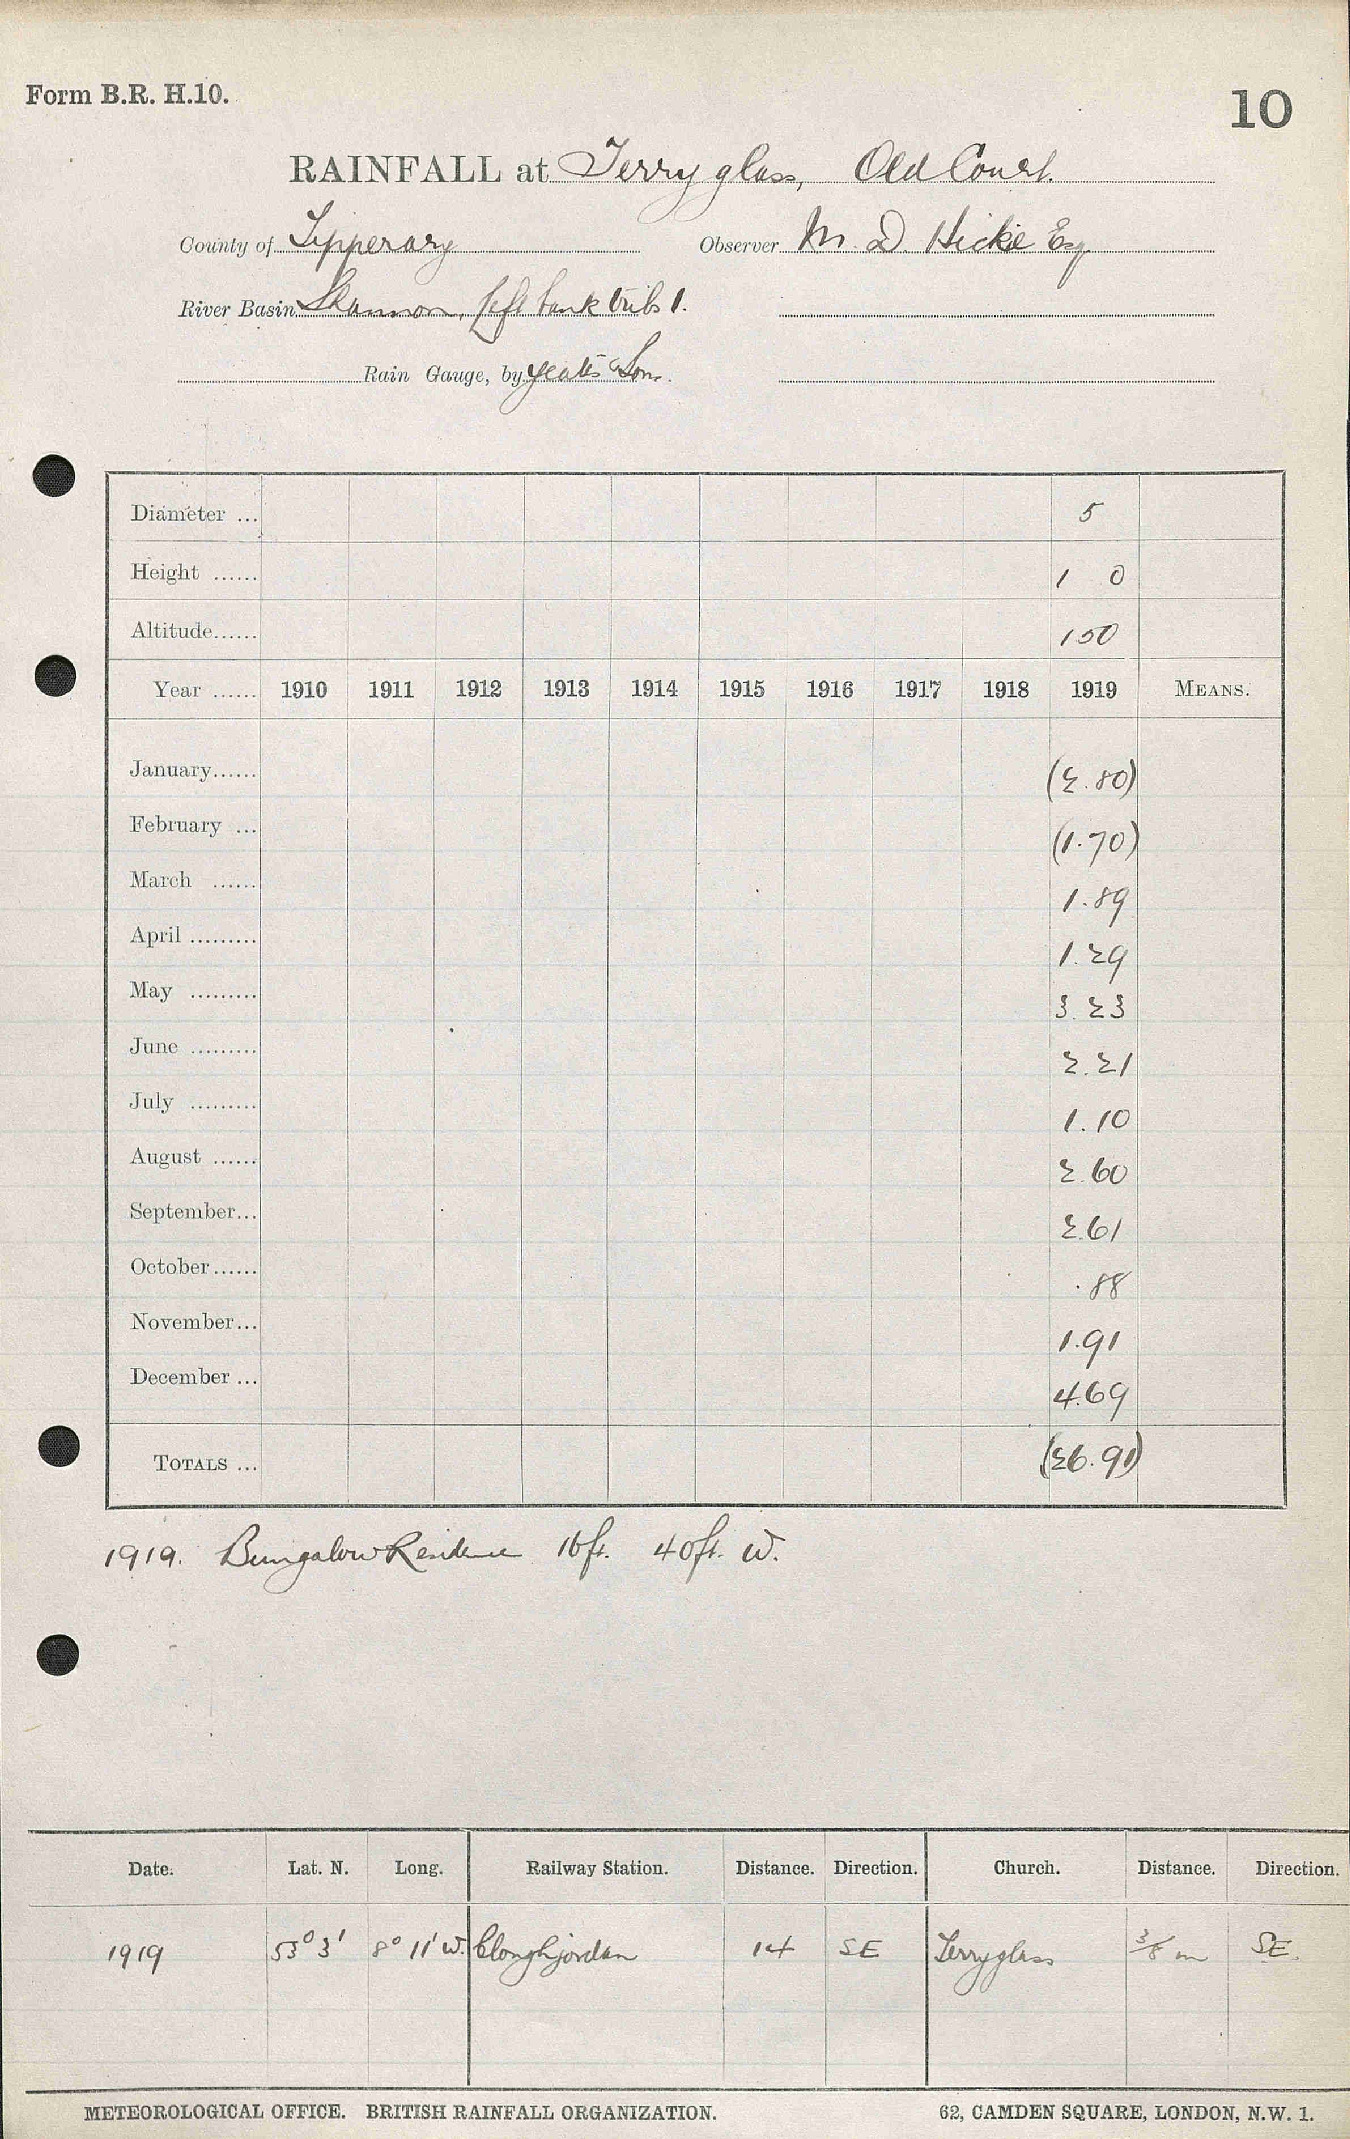 Form B.R. H.10.
10
RAINFALL at Terryglass, Old Court.
County of Tipperary Observer M. D Hickie Esq
River Basin Shannon, left bank tribs 1.
Rain Gauge, by Yeates & Son.
Diameter ... 5
Height ...... 1 0
Altitude...... 150
Year ...... 1910 1911 1912 1913 1914 1915 1916 1917 1918 1919 MEANS.
January...... (2.80)
February ... (1.70)
March ...... 1.89
April ......... 1.29
May ......... 3.23
June ......... 2.21
July ......... 1.10
August ...... 2.60
September... 2.61
October...... .88
November... 1.91
December ... 4.69
TOTALS ... (26.91)
1919. Bungalow Residence 16ft. 40ft. W.
Date. Lat. N. Long. Railway Station. Distance. Direction. Church. Distance. Direction.
1919 53° 3' 8° 11' W. Cloughjordan 14 SE Terryglass 3/8 m SE.
METEOROLOGICAL OFFICE. BRITISH RAINFALL ORGANIZATION. 62, CAMDEN SQUARE, LONDON, N.W. 1.